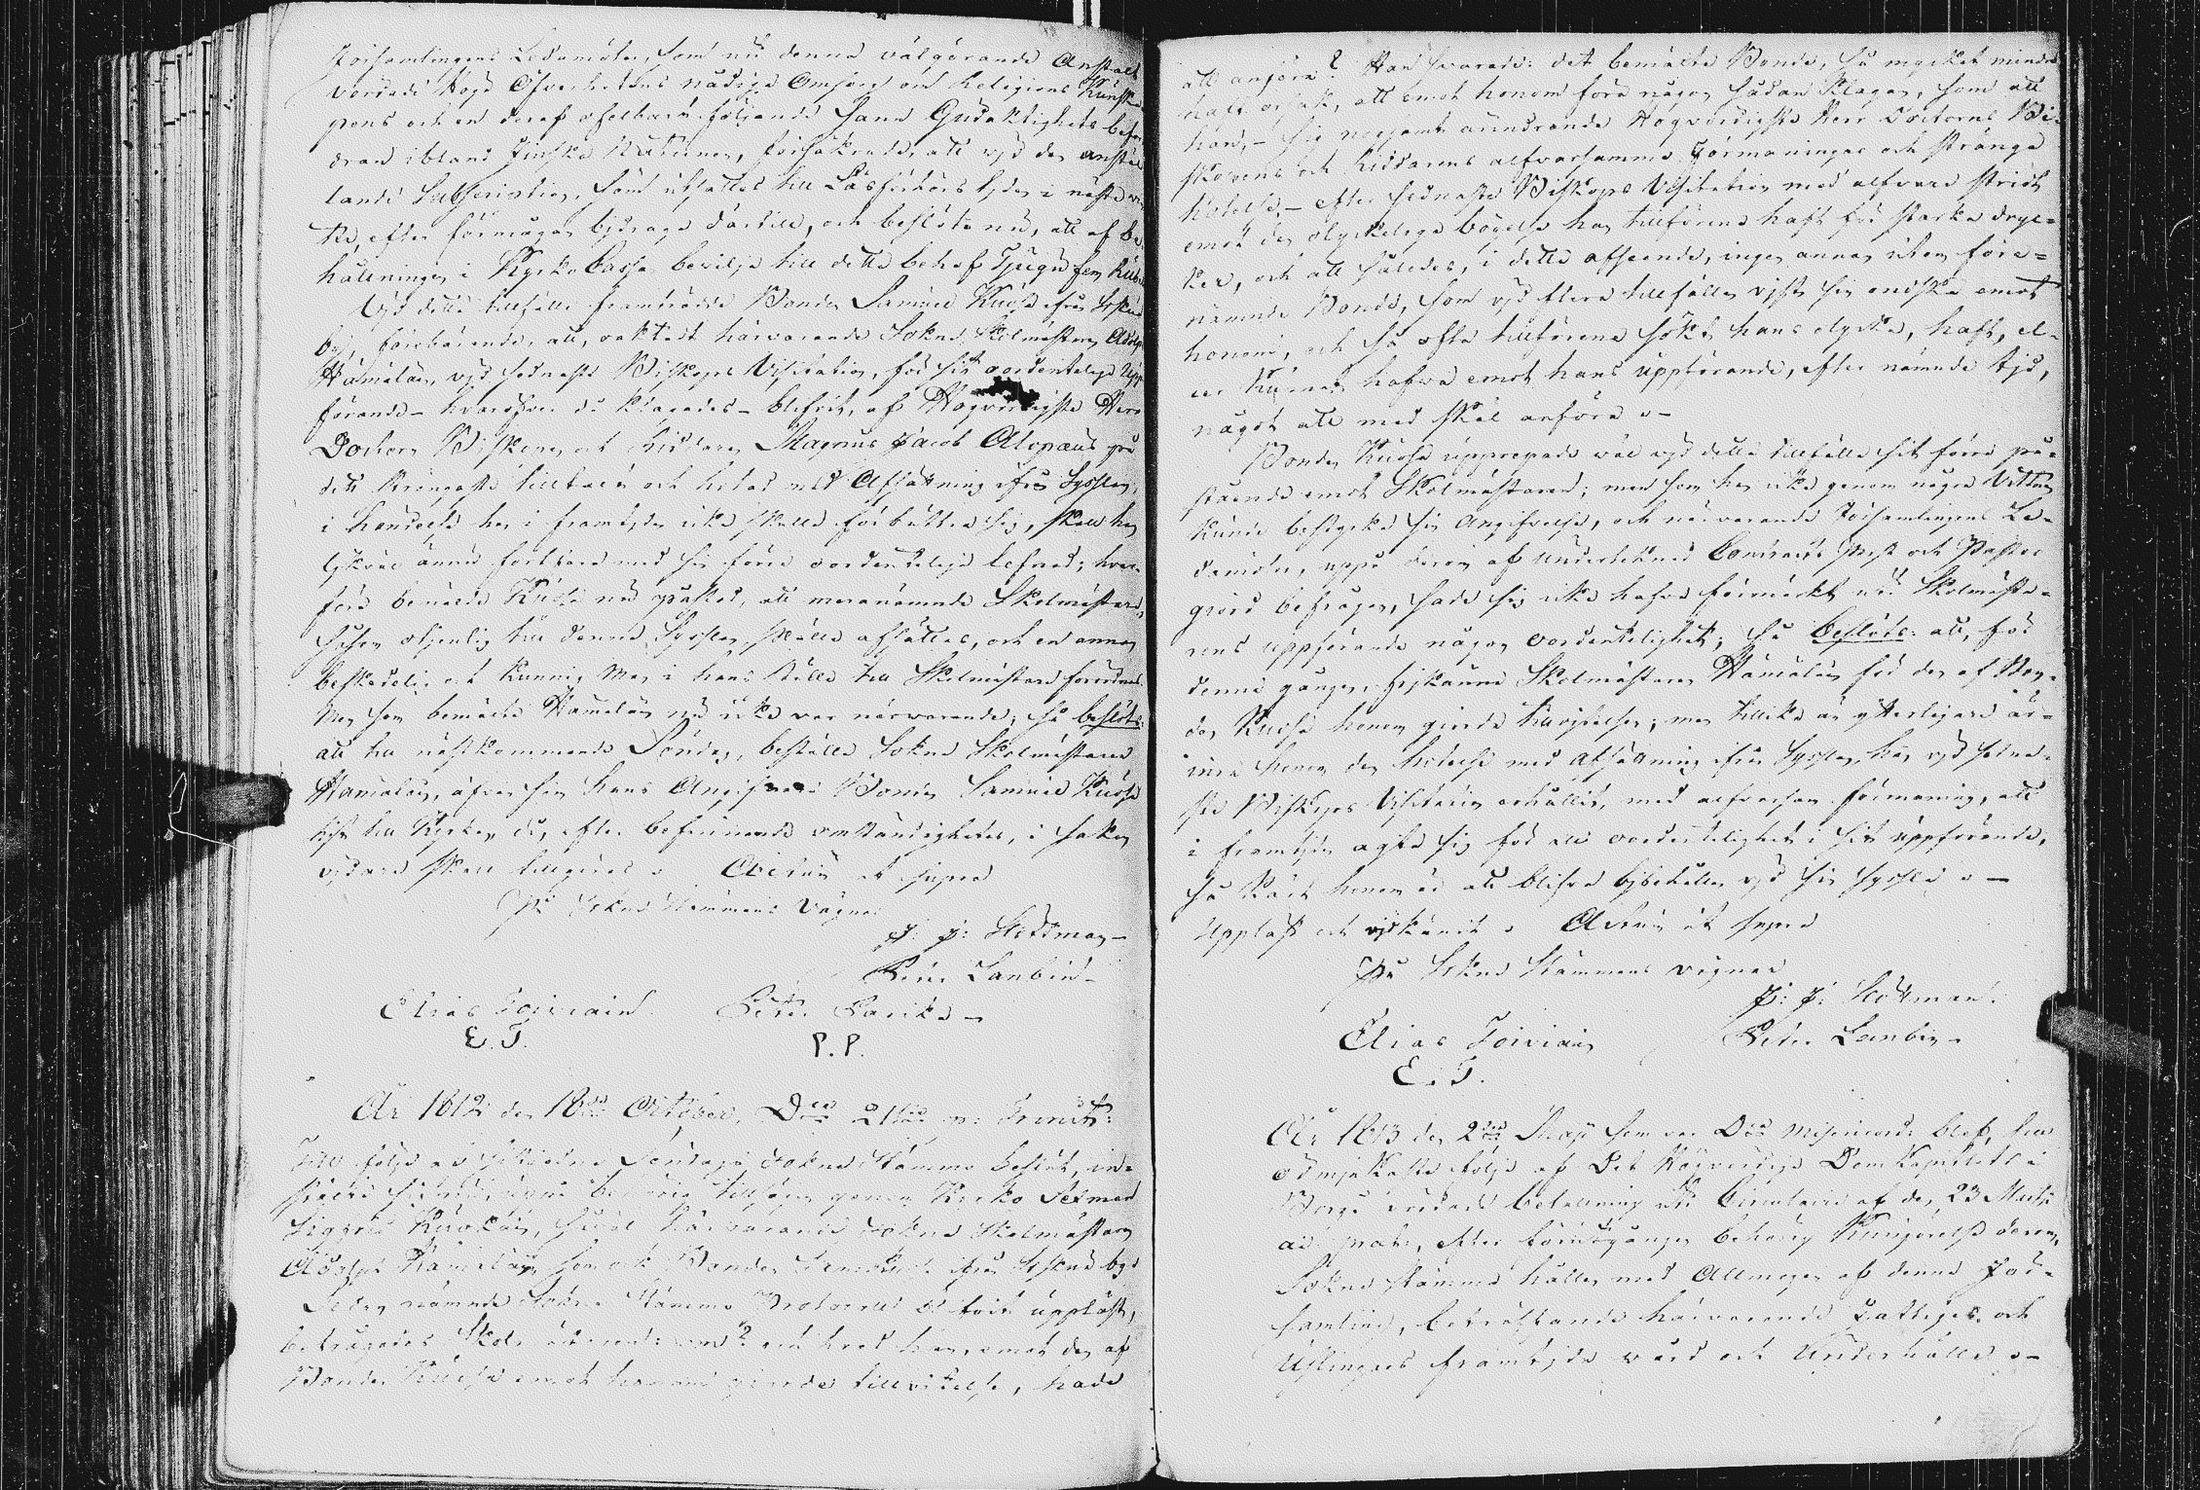 Församlingens Ledamöter, som nu denna välgörande Anstalt
vörda Höga Öfverhetens nådiga Omsorg om Religions Kunska
pens och en deraf ofelbart följande sann Gudaktighets befor
dran ibland Finska Nationen, försäkrade, att vid den anstäl
lande Subscription, som utsattes till Läsförhörs tiden i nästa
efter förmågan bidraga därtill, och beslöto nu, att af be
hållningen i Kyrko Cassa bevilja till detta behof Tjugu fem Rub
Vid detta tillfälle framträdde Bonden Samuel Kuosa ifrån
by, förebärande, att, oaktadt härvarande Sokne Skolmästaren Adolph
Hämäläin vid sednaste Biskops Visitation, för sitt oordenteliga Upp
förande – hvaröfver då klagades – blifvit, af Högvördigste Herr
Doctorn Biskopen och Riddaren Magnus Jacob Alopæus på
det strängaste tilltalt och hotad med Afsättning ifrån Sysslan,
i händelse han i framtiden icke skulle förbättra sig, skall han
likväl ännu fortfara med sin förra oordenteliga lefnad; hvar
före bemälde Kuosa nu yrkat, att meranämnde Skolmästare,
såsom otjenlig till denna Sysslan, skulle afsättas, och en annan
beskedelig och kunnig Man i hans ställe till Skolmästare förordnas.
Men som bemälte Hämäläin nu icke var närvarande, så beslöts:
att till nästkommande Söndag, beställa Sokne Skolmästaren
Hämäläin, äfven som hans Angifvare Bonden Samuel Kuosa
hit till Kyrkan då, efter befinnande omständigheter, i saken
vidare skall tillgöras. Actum ut supra
På Sokne Stämmans vägnar
J: J: Hottman
Petter Lanbin
Elias Toiviain Petter Parika
E. T. P. P.
År 1812 den 18de October, Dca 21ma p: Trinit:
Till följe af sistledne Söndags Sokne Stämmo beslut, in-
ställte sig, uppå behörig tillsägn genom Kyrko
Sigfrid Kuokoin, såväl härvarande Sokne Skolmästaren
Adolph Hämäläin som ock Bonden Sam Kuosa ifrån by
Sedan nämnde Sokne Stämmo Protocoll blifvit uppläst,
betrågades Skolmästaren: om? och hvad han, emot den af
Bonden Kuosa emot honom gjorde tillvitelse, hade
att anföra? Han svarade: det bemälte Bonde, så mycket mindre
haft orsak, att emot honom föra någon sådan klagan, som att
han, – sig noksamt ärindrande Högvördigste Herr Doctorns Bi-
skopens och Riddarens alfvarsamma Förmaningar och stränga
hotelse, – efter sednaste Biskops Visitation med alfvare stridt
emot den olyckeliga bögelse han tillförene haft för starka dryc-
ker, och att således, i detta afseende, ingen annan utom före-
nämnde Bonde, som vid flera tillfällen vist sig ondska emot
honom, och så ofta tillförene sökt hans olycka, haft, el-
ler kunnat hafva emot hans uppförande, efter nämnde tid,
något att med skäl anföra. –
Bonden Kuosa upprepade väl vid detta tillfälle sitt förra på-
stående emot Skolmästaren; men som han icke genom några Vittnen
kunde bestyrka sin Angifvelse, och närvarande Församlingens Le-
damöter, uppå derom af undertecknad Contracts Prost och Pastor
gjord befrågan, sade sig icke hafva förmärkt uti Skolmästa-
rens uppförande någon oordentelighet; så beslöts: att, för
denna gången, frikänna Skolmästaren Hämäläin för den af Bon-
den Kuosa honom gjorda tillvitelsen; men tillika än ytterligare är-
inra honom den hotelse med afsättning ifrån Sysslan, han vid sedna-
ste Biskops Visitation erhållit, med alfvarsam förmaning, att
i framtiden agta sig för all oordentelighet i sitt uppförande,
så kärt honom är att blifva bibehållen vid sin Syssla. –
Uppläst och vidkändt. Actum ut supra
På Sokne Stämmans vägnar
J: J: Hottman.
Elias Toiviain Petter Lanbin
E. T.
År 1813 den 2dra Maji som var Dca Misericord: blef, till
ödmjukaste följe af Det Högvördige DomKapitlets i
Borgå befallning uti Circulaire af den 23 Martii
, efter förutgången behörig Kungörelse derom,
Sokne stämma hållen med Allmogen af denna För-
samling, beträffande härvarande Fattiges och
Uslingars framtida vård och Underhålle. –